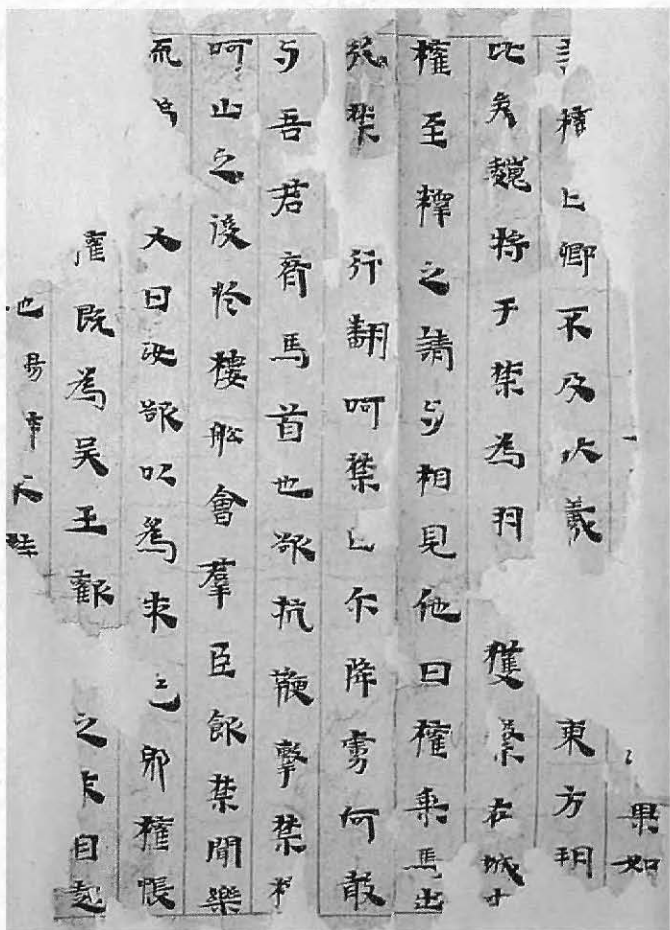 果如
權〻卿不及伏羲 東方朔
比矣魏將于禁為羽 獲繫在城中
權至釋之請与相見他日權乘馬出
禁 行翻呵禁〻尔降虜何敢
与吾君齊馬首也欲抗鞭擊禁權
呵止之後於樓船會羣臣飲禁聞樂
流 又曰汝欲以為求 邪權悵
權既為吳王歡 之末自起
不持